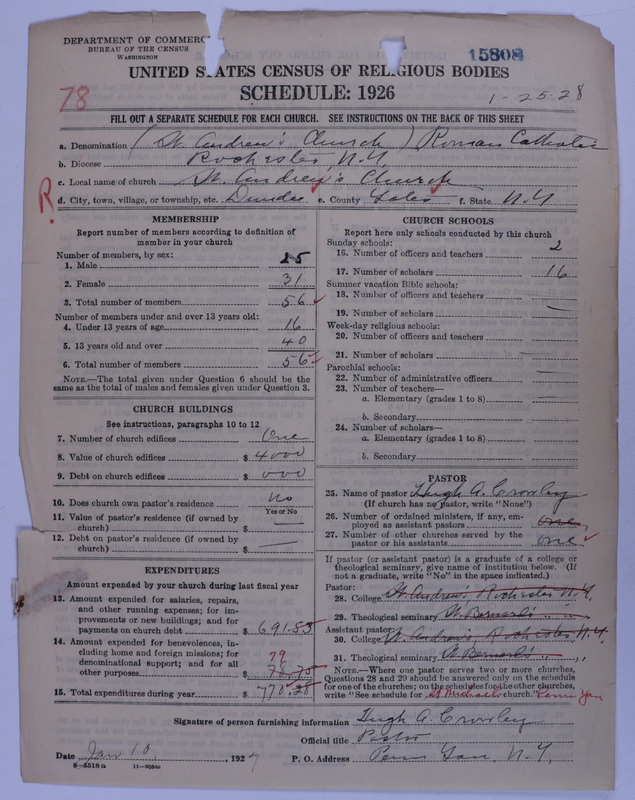 DEPARTMENT OF COMMERC
BUREAU OF THE CENSUS
WASHINGTON
15808
UNITED STATES CENSUS OF RELIGIOUS BODIES
SCHEDULE: 1926
78
1-25-28
FILL OUT A SEPARATE SCHEDULE FOR EACH CHURCH. SEE INSTRUCTIONS ON THE BACK OF THIS SHEET
a. Denomination (St. Andrew's Church) Roman Catholic
b. Diocese Rochester, N.Y.
c. Local name of church St. Andrew's Church
R
d. City, town, village, or township, etc. Dundee e. County Yates f. State N.Y.
MEMBERSHIP
Report number of members according to definition of
member in your church
Number of members, by sex:
1. Male 25
2. Female 31
3. Total number of members 56
Number of members under and over 13 years old:
4. Under 13 years of age 16
5. 13 years old and over 40
6. Total number of members 56
NOTE.—The total given under Question 6 should be
same as the total of males and females given under Question 3.
CHURCH BUILDINGS
See instructions, paragraphs 10 to 12
7. Number of church edifices One
8. Value of church edifices $ 4000
9. Debt on church edifices $ 000
10. Does church own pastor's residence No
Yes or No
11. Value of pastor's residence (if owned by
church) $ —
12. Debt on pastor's residence (if owned by
church) $ —
EXPENDITURES
Amount expended by your church during last fiscal year
13. Amount expended for salaries, repairs,
and other running expenses; for im-
provements or new buildings; and for
payments on church debt $ 691.53
14. Amount expended for benevolences, in-
cluding home and foreign missions; for
denominational support; and for all
79
other purposes $ 78.75
15. Total expenditures during year $ 770.28
CHURCH SCHOOLS
Report here only schools conducted by this church
Sunday schools:
16. Number of officers and teachers 2
17. Number of scholars 16
Summer vacation Bible schools:
18. Number of officers and teachers —
19. Number of scholars —
Week-day religious schools:
20. Number of officers and teachers —
21. Number of scholars —
Parochial schools:
22. Number of administrative officers —
23. Number of teachers—
a. Elementary (grades 1 to 8) —
b. Secondary
24. Number of scholars—
a. Elementary (grades 1 to 8) —
b. Secondary —
PASTOR
25. Name of pastor Hugh A. Crowley
(If church has no pastor, write "None")
26. Number of ordained ministers, if any, em-
ployed as assistant pastors one
27. Number of other churches served by the
pastor or his assistants one
If pastor (or assistant pastor) is a graduate of a college or
theological seminary, give name of institution below. (If
not a graduate, write "No" in the space indicated.)
Pastor:
28. College St. Andrews, Rochester N.Y.
29. Theological seminary St. Bernard's " "
Assistant pastor:
30. College St. Andrew's, Rochester, N.Y.
31. Theological seminary St. Bernard's " "
NOTE.—Where one pastor serves two or more churches,
Questions 28 and 29 should be answered only on the schedule
for one of the churches; on the schedules for the other churches,
write "See schedule for St Michael's church." Penn Yan
Signature of person furnishing information Hugh A. Crowley
Official title Pastor
Date Jan 10, 1927 P. O. Address Penn Yan, N.Y.
8—5518a 11—9654c